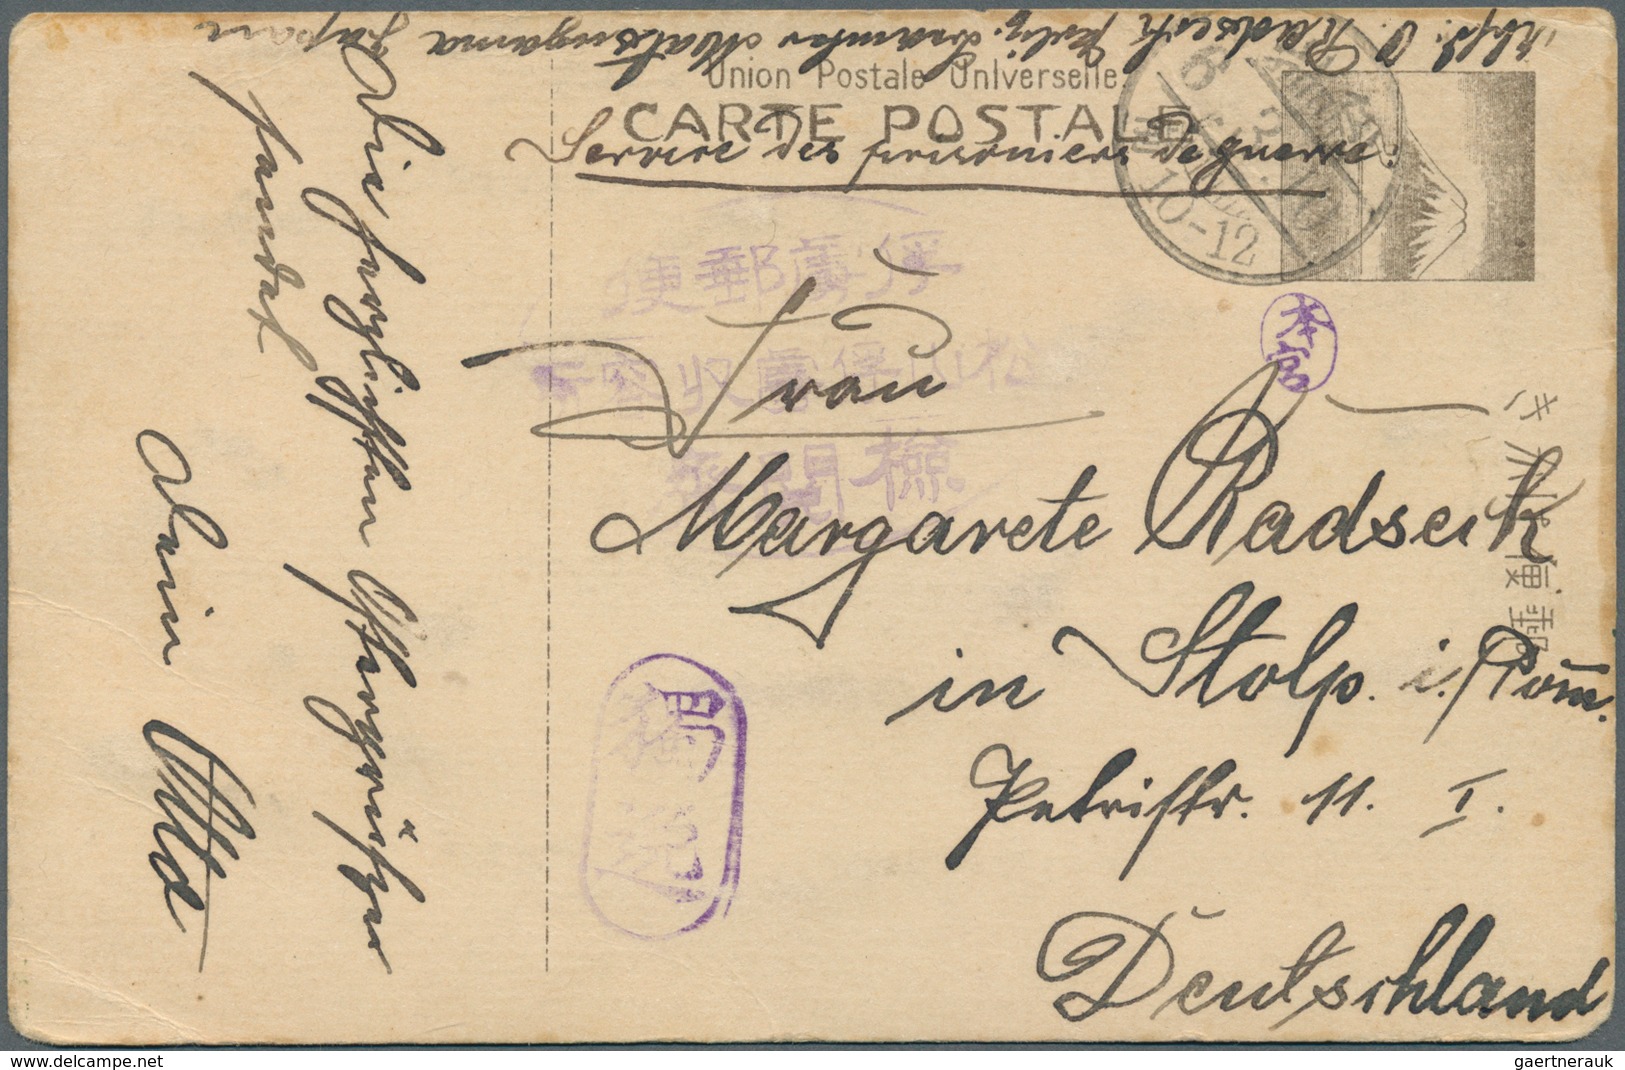 Absd: O. Radseck Poliz. Beamter Matsuyama Japan
Union Postale Universelle.
CARTE POSTALE
Service des prisonniers de guerre.
10-12
俘虜郵便
松山俘虜収容所
検閲済
Frau
Margarete Radseck
in Stolp. i./Pom.
Petristr. 11. I.
Deutschland
きかは便郵
Die herzlichsten Ostergrüße
sendet
Dein Otto
delcampe.net
gaertnerauk